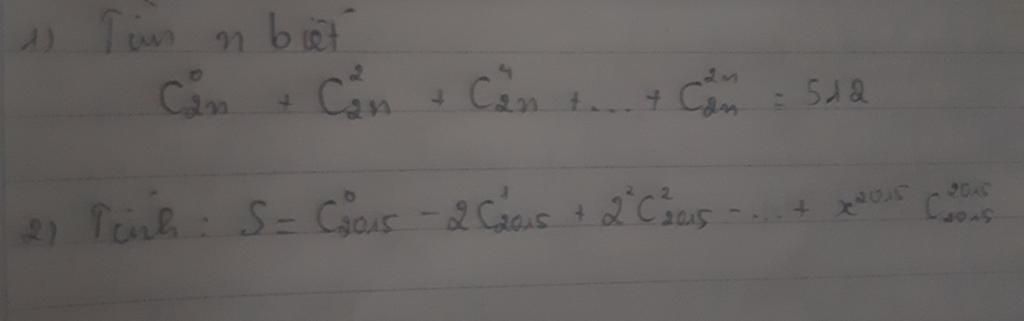 1) Tìm n biết
C⁰₂ₙ + C²₂ₙ + C⁴₂ₙ + ... + C²ⁿ₂ₙ = 512
2) Tính : S = C⁰₂₀₁₅ - 2C¹₂₀₁₅ + 2²C²₂₀₁₅ - ... + x²⁰¹⁵ C²⁰¹⁵₂₀₁₅